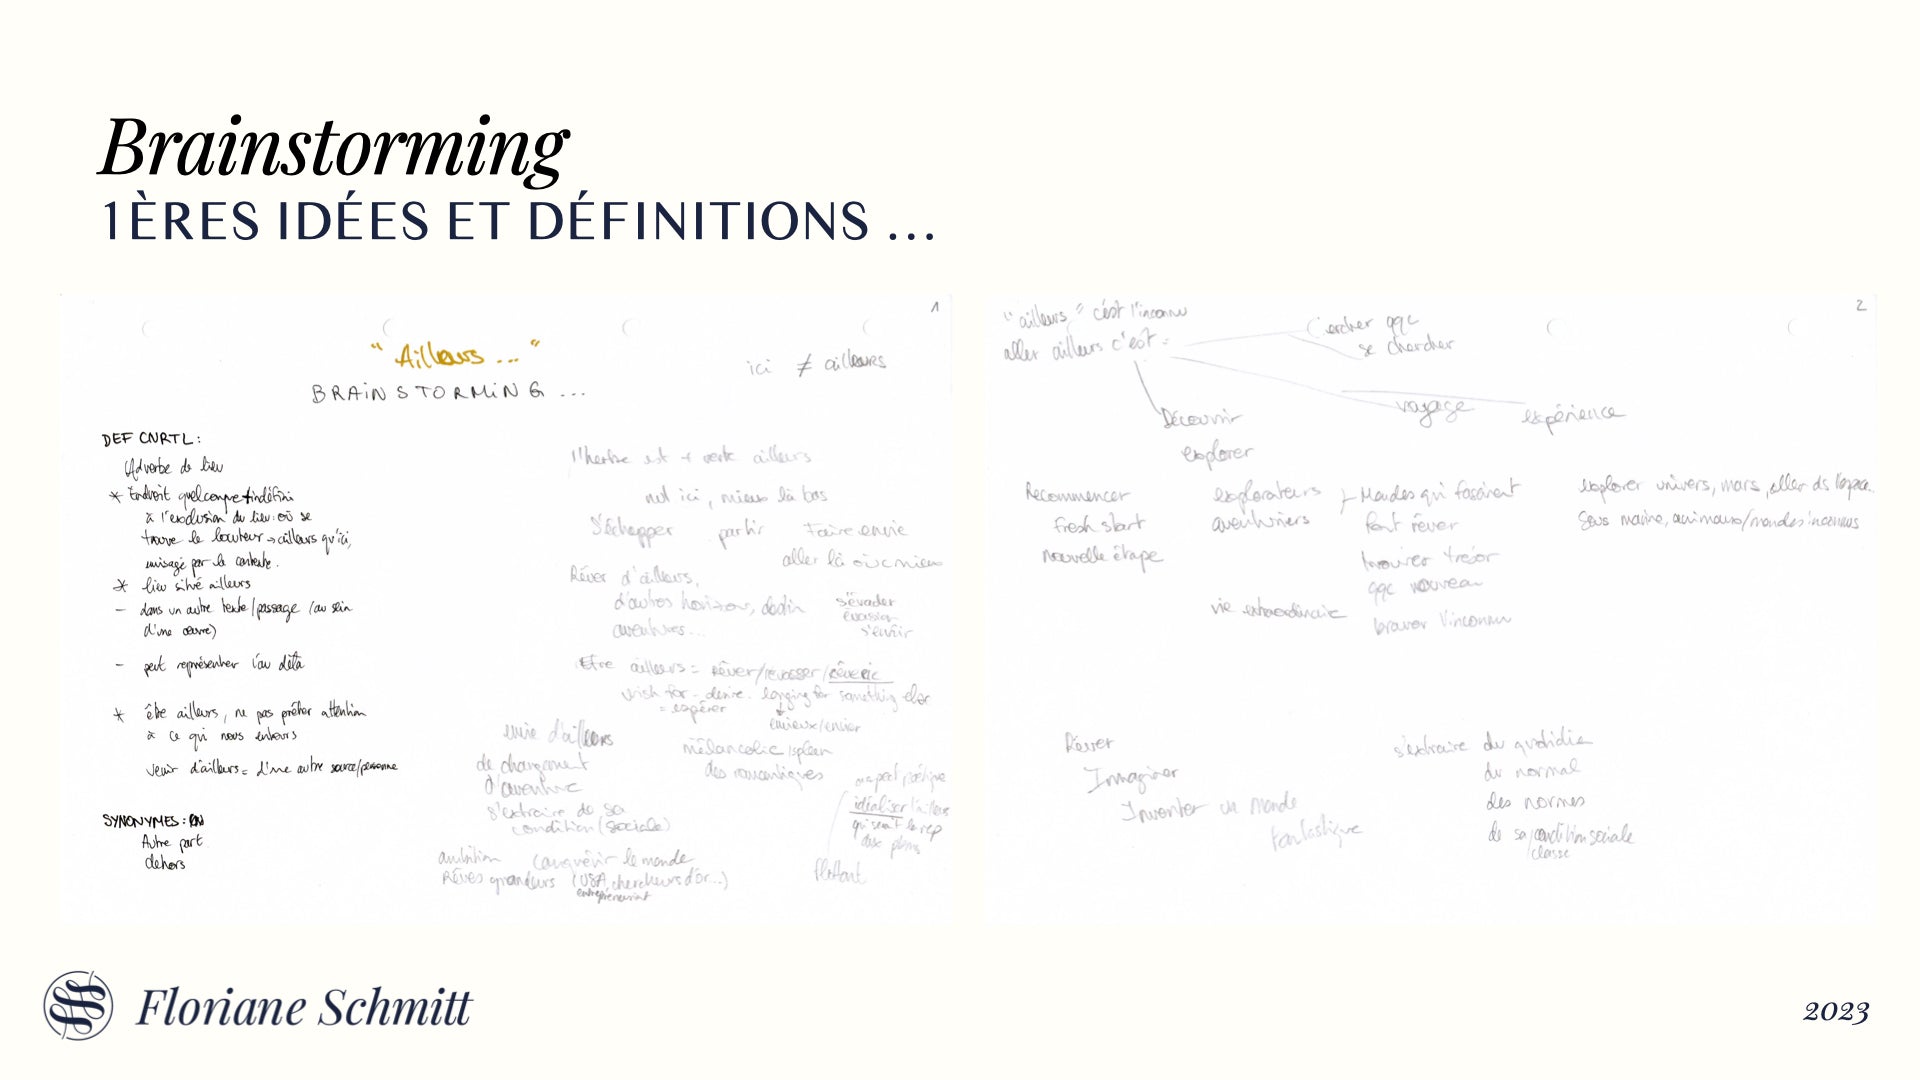 Brainstorming
1ÈRES IDÉES ET DÉFINITIONS ...
1
"Ailleurs ..."
BRAINSTORMING ...
ici ≠ ailleurs
DEF CNRTL :
Adverbe de lieu
* Endroit quelconque + indéfini
à l'exclusion du lieu où se
trouve le locuteur → ailleurs qu'ici,
envisagé par le contexte.
* lieu situé ailleurs
- dans un autre texte/passage (au sein
d'une œuvre)
- peut représenter l'au delà
* être ailleurs, ne pas prêter attention
à ce qui nous entoure
venir d'ailleurs = d'une autre source/personne
SYNONYMES :
Autre part
dehors
l'herbe est + verte ailleurs
nul ici, mieux là bas
S'échapper partir Faire envie
aller là où c mieux
Rêver d'ailleurs,
d'autres horizons, destin
aventures...
s'évader
évasion
s'enfuir
Être ailleurs = rêver/rêvasser/rêverie
wish for - desire - longing for something else
= espérer
envieux/envier
envie d'ailleurs
de changement
d'aventure
s'extraire de sa
condition (sociale)
mélancolie/spleen
des romantiques
aspect poétique
idéaliser l'ailleurs
qui serait la rep
aux
flottant
ambition conquérir le monde
Rêves grandeurs (USA, chercheurs d'or...)
entrepreneuriat
2
"ailleurs" c'est l'inconnu
aller ailleurs c'est =
Chercher qqc
se chercher
voyage
expérience
Découvrir
explorer
Recommencer
fresh start
nouvelle étape
explorateurs
aventuriers
Mondes qui fascinent
font rêver
trouver trésor
qqc nouveau
braver l'inconnu
vie extraordinaire
explorer univers, mars, aller ds l'espace.
Sous marine, animaux/mondes inconnus
Rêver
Immaginer
Inventer un monde
fantastique
s'extraire du quotidien
du normal
des normes
de sa condition sociale
/classe
Floriane Schmitt
2023